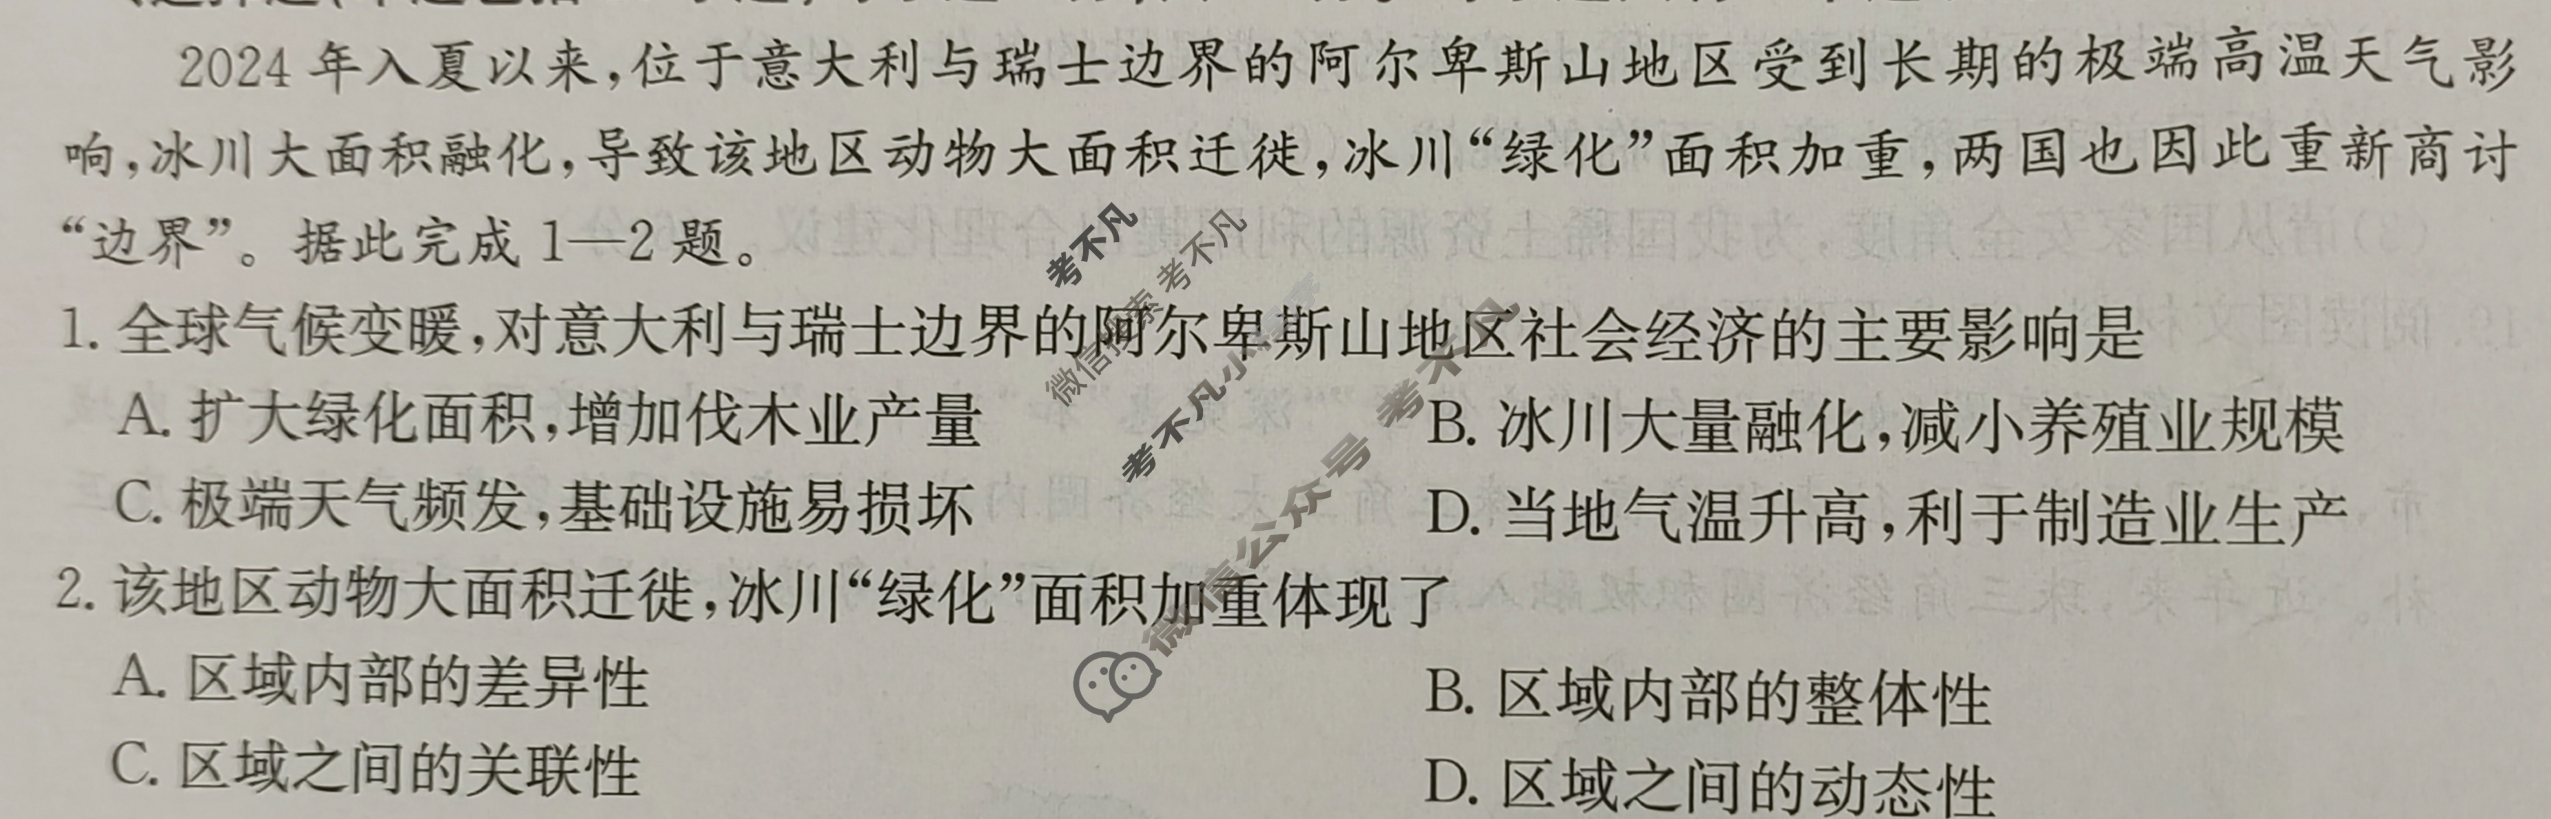 2024年入夏以来,位于意大利与瑞士边界的阿尔卑斯山地区受到长期的极端高温天气影
响,冰川大面积融化,导致该地区动物大面积迁徙,冰川“绿化”面积加重,两国也因此重新商讨
“边界”。据此完成1—2题。
1.全球气候变暖,对意大利与瑞士边界的阿尔卑斯山地区社会经济的主要影响是
A.扩大绿化面积,增加伐木业产量
B.冰川大量融化,减小养殖业规模
C.极端天气频发,基础设施易损坏
D.当地气温升高,利于制造业生产
2.该地区动物大面积迁徙,冰川“绿化”面积加重体现了
A.区域内部的差异性
B.区域内部的整体性
C.区域之间的关联性
D.区域之间的动态性
考不凡
微信搜索 考不凡
考不凡小
微信公众号 考不凡